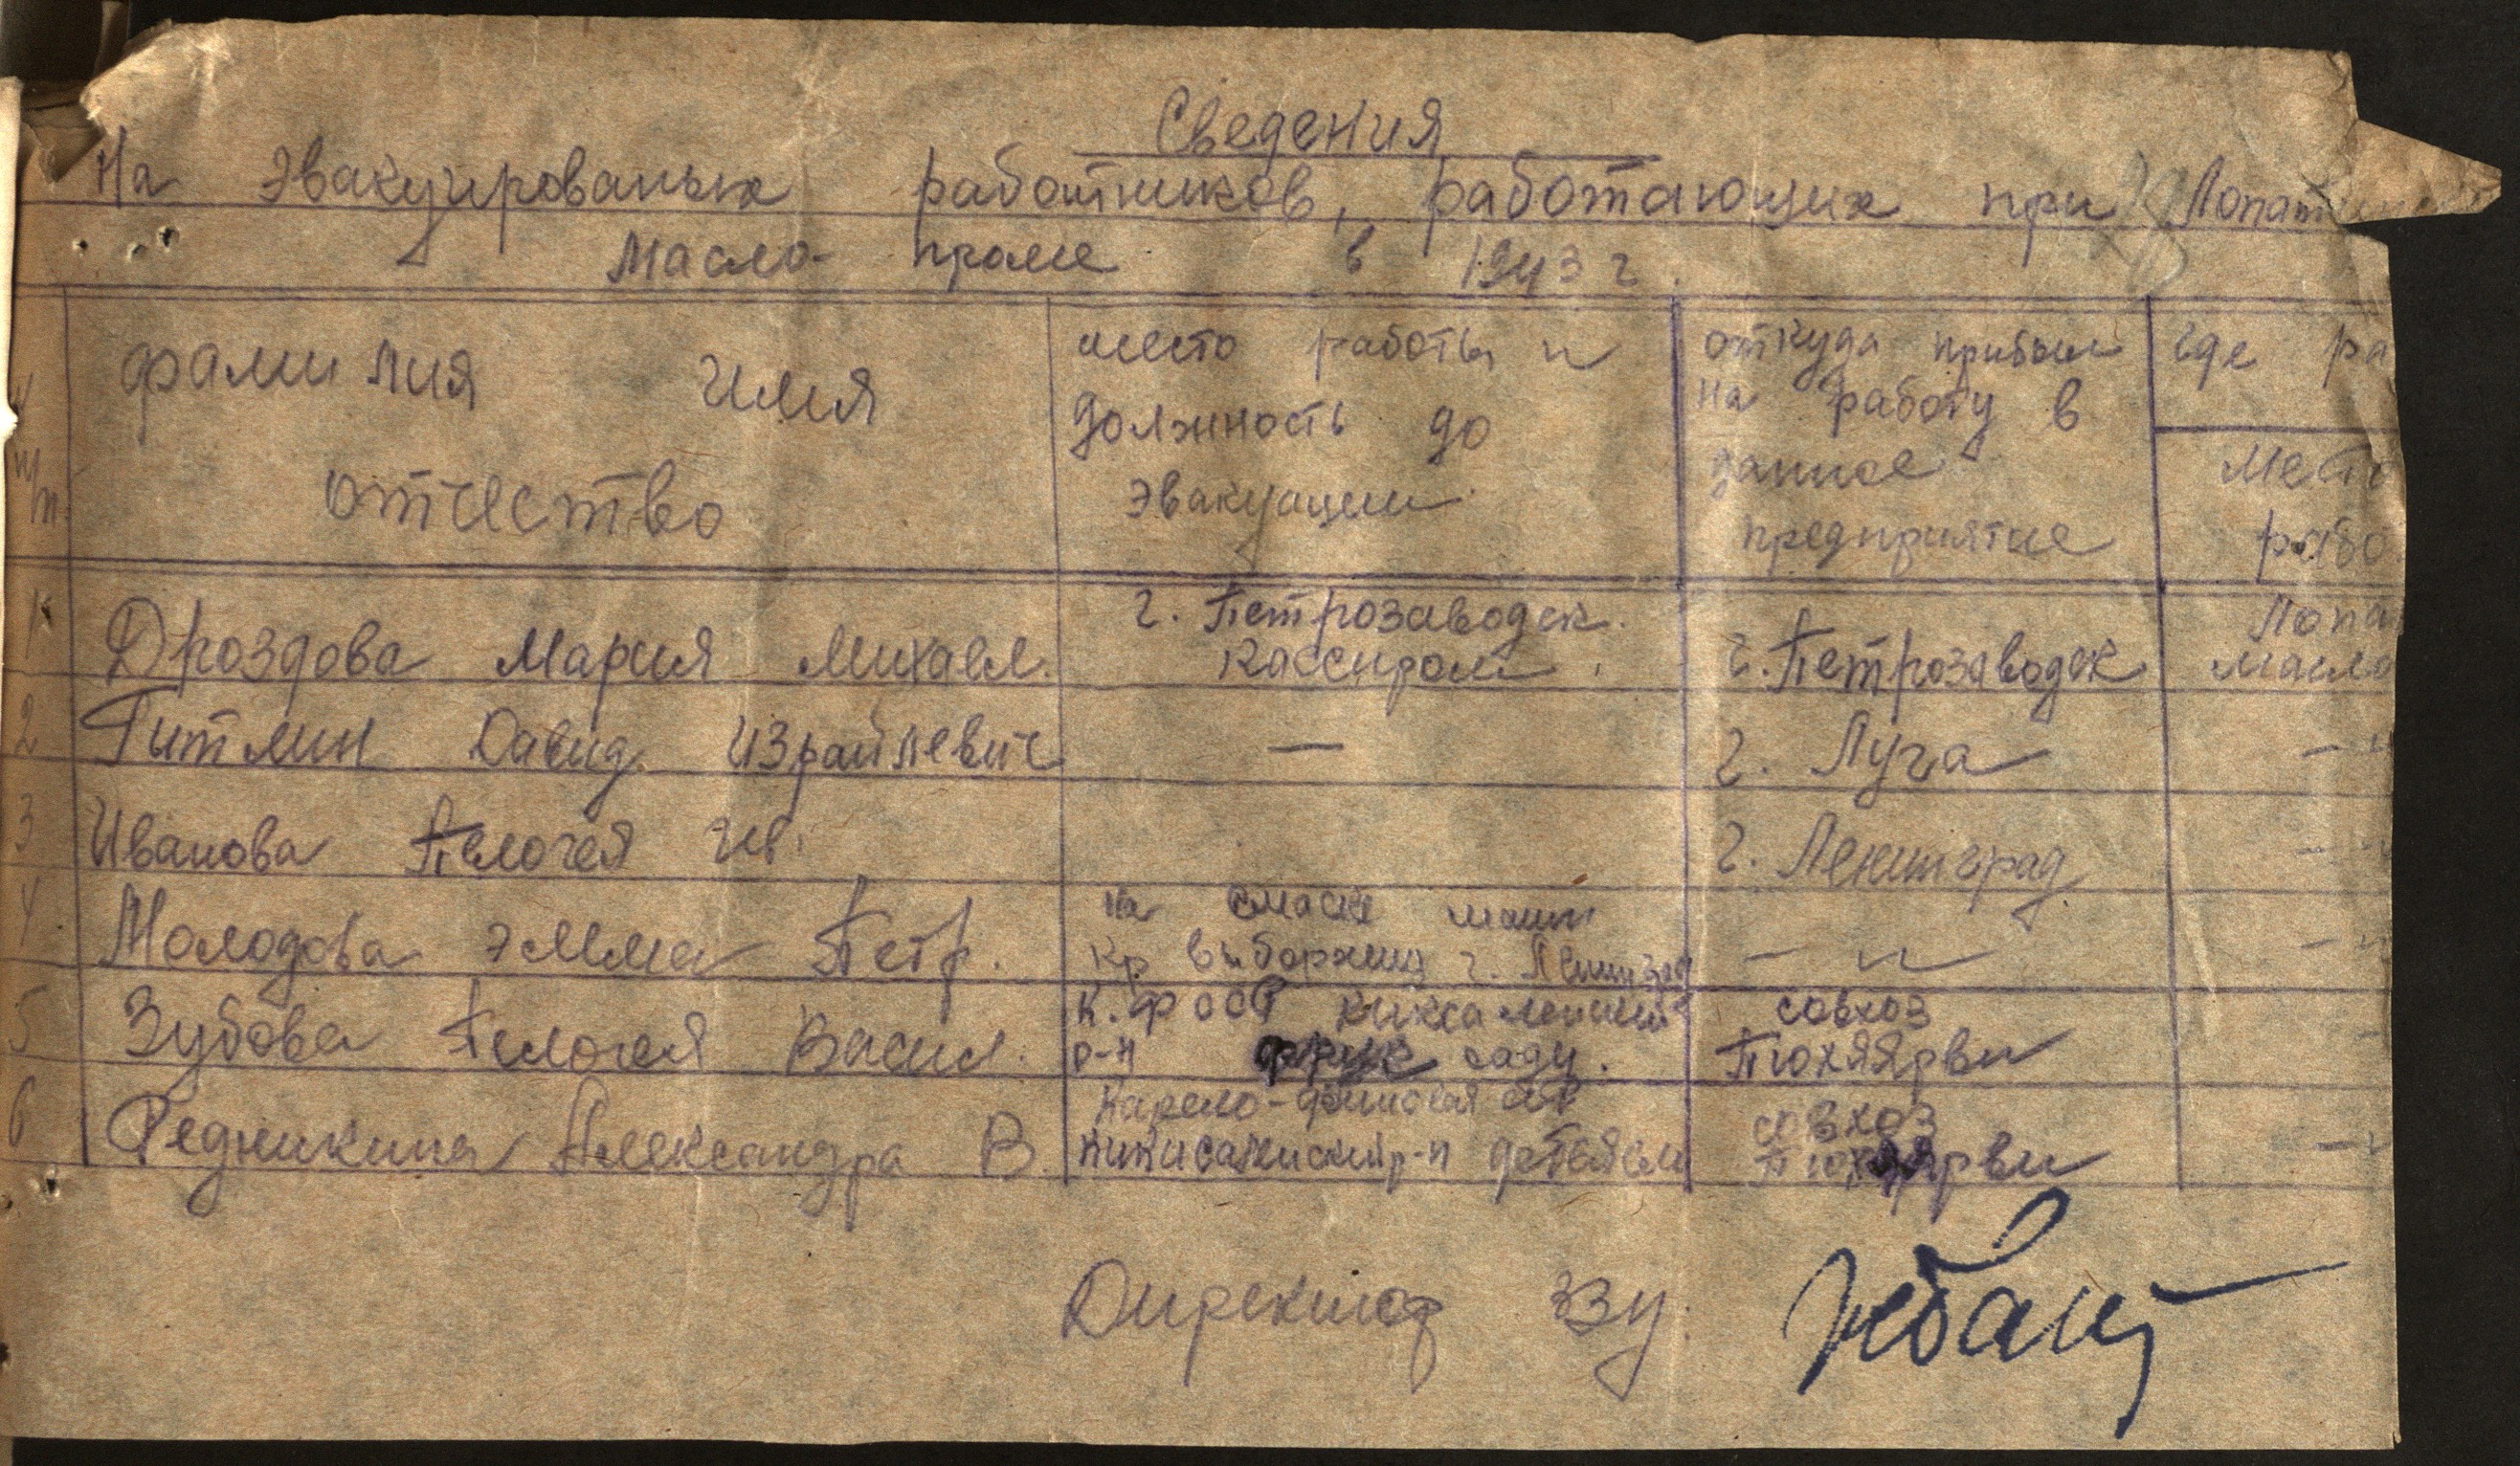 Сведения
На эвакуированых работников, работающих при Лопат
Масло- проме в 1943 г.
фамилия имя
отчество
место работы и
должность до
эвакуации
откуда прибыл
на работу в
данное
предприятие
где ра
Место
рабо
1 Дроздова Мария Михаел. г. Петрозаводск. Кассиром. г. Петрозаводск Лопа
масло
2 Гитлин Давид Израйлевич — г. Луга — "
3 Иванова Пелогея Ив. г. Ленинград — "
4 Молодова Эмма Петр. на
Кр. г. — " — — "
5 Зубова Пелогея Васил. К. Ф ССР совхоз
р-н фрук саду. Пюхяярви -
6 Федникина Александра В. Карело-финская ССР совхоз
р-н детяслі Пюхяярви — "
Директор ЗЗУ.